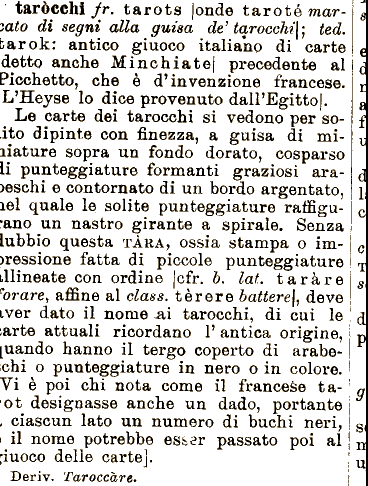 taròcchi fr. tarots [onde taroté mar-
cato di segni alla guisa de' tarocchi]; ted.
tarok: antico giuoco italiano di carte
detto anche Minchiate] precedente al
Picchetto, che è d'invenzione francese.
L'Heyse lo dice provenuto dall'Egitto].
Le carte dei tarocchi si vedono per so-
lito dipinte con finezza, a guisa di mi-
niature sopra un fondo dorato, cosparso
di punteggiature formanti graziosi ara-
beschi e contornato di un bordo argentato,
nel quale le solite punteggiature raffigu-
rano un nastro girante a spirale. Senza
dubbio questa TÀRA, ossia stampa o im-
pressione fatta di piccole punteggiature
allineate con ordine [cfr. b. lat. taràre
forare, affine al class. tèrere battere], deve
aver dato il nome ai tarocchi, di cui le
carte attuali ricordano l'antica origine,
quando hanno il tergo coperto di arabe-
schi o punteggiature in nero o in colore.
[Vi è poi chi nota come il francese ta-
rot designasse anche un dado, portante
a ciascun lato un numero di buchi neri,
e il nome potrebbe esser passato poi al
giuoco delle carte].
Deriv. Taroccàre.